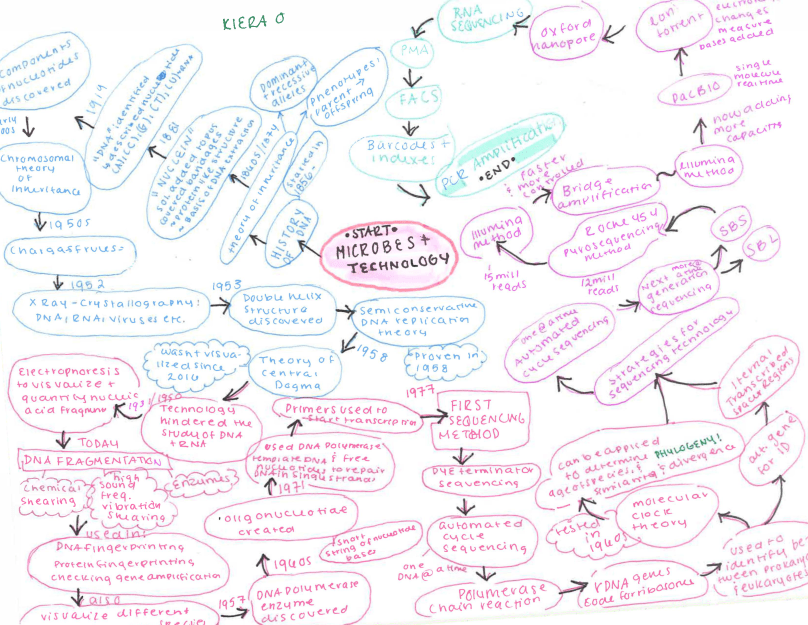 KIERA O
•START•
MICROBES +
TECHNOLOGY
HISTORY
OF DNA
theory of inheritance
started in
1856
1840s/1974
Dominant
+ recessive
alleles
phenotypes:
parent →
offspring
"NUCLEIN"
covered bandages
~ protein like structure
~ Basis of DNA extraction
1881
"DNA" identified
(A)(C)(G)(T)(U) RNA
1919
components
of nucleotides
discovered
Chromosomal
theory
of
inheritance
1950s
Chargaff rules
1952
X Ray-Crystallography:
DNA, RNA, viruses etc.
1953
Double helix
structure
discovered
Semiconservative
DNA replication
theory
1958
proven in
1958
Theory of
central
Dogma
wasnt visua-
lized since
2010
Technology
hindered the
study of DNA
+ RNA
1931/1950
Electrophoresis
to visualize +
quantify nucleic
acid fragments
TODAY
DNA FRAGMENTATION
Chemical
shearing
high
sound
freq.
vibration
shearing
Enzymes
used in:
DNA fingerprinting
Protein fingerprinting
checking gene amplification
also
visualize different
species
1957
DNA polymerase
enzyme
discovered
1960s
•oligonucleotide
created
*short
string of nucleotide
bases
1971
used DNA polymerase,
template DNA & free
nucleotides to repair
DNA in single strands
Primers used to
start transcription
1977
FIRST
SEQUENCING
METHOD
Dye terminator
sequencing
automated
cycle
sequencing
one
DNA @ a time
Polymerase
chain reaction
rDNA genes
code for ribosomes
used to
identify be-
tween prokaryotes
& eukaryotes
molecular
clock
theory
tested
in
1960s
can be applied
to determine PHYLOGENY!
age of species, &
similarity & divergence
gene
for ID
Internal
Transcribed
Spacer Regions
strategies for
sequencing technology
one @ a time
Automated
cycle sequencing
more @
a time
Next
generation
sequencing
SBS
SBL
ROCHE 454
Pyrosequencing
method
12 mill
reads
Illumina
method
15 mill
reads
faster
& more
controlled
Bridge
amplification
Illumina
method
now adding
more
capacities
PacBIO
single
molecule
realtime
Ion
torrent
changes
measure
bases added
oxford
nanopore
RNA
SEQUENCING
PMA
FACS
Barcodes +
indexes
PCR Amplification
•END•